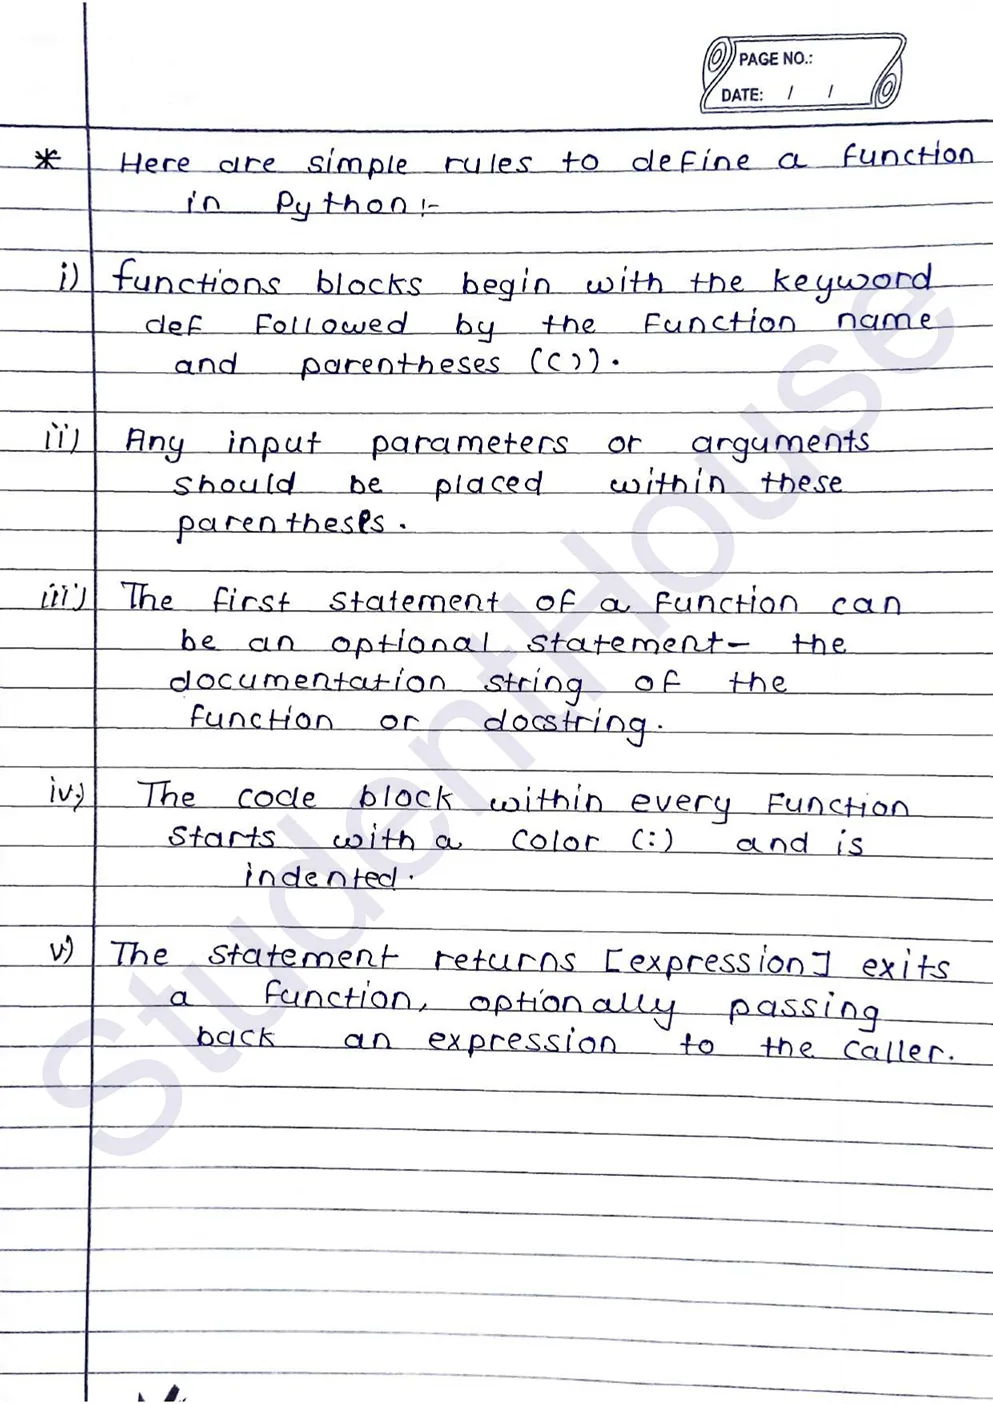 PAGE NO.:
DATE: / /
* Here are simple rules to define a function
in Python :-
i) functions blocks begin with the keyword
def followed by the function name
and parentheses (()).
ii) Any input parameters or arguments
should be placed within these
parentheses.
iii) The first statement of a function can
be an optional statement- the
documentation string of the
function or docstring.
iv) The code block within every function
starts with a color (:) and is
indented.
v) The statement returns [expression] exits
a function, optionally passing
back an expression to the caller.
StudentHouse